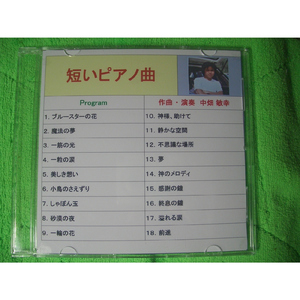 短いピアノ曲
Program
作曲・演奏 中畑 敏幸
1. ブルースターの花
2. 魔法の夢
3. 一筋の光
4. 一粒の涙
5. 美しき想い
6. 小鳥のさえずり
7. しゃぼん玉
8. 砂漠の夜
9. 一輪の花
10. 神様、助けて
11. 静かな空間
12. 不思議な場所
13. 夢
14. 神のメロディ
15. 感謝の鐘
16. 終息の鐘
17. 溢れる涙
18. 前進